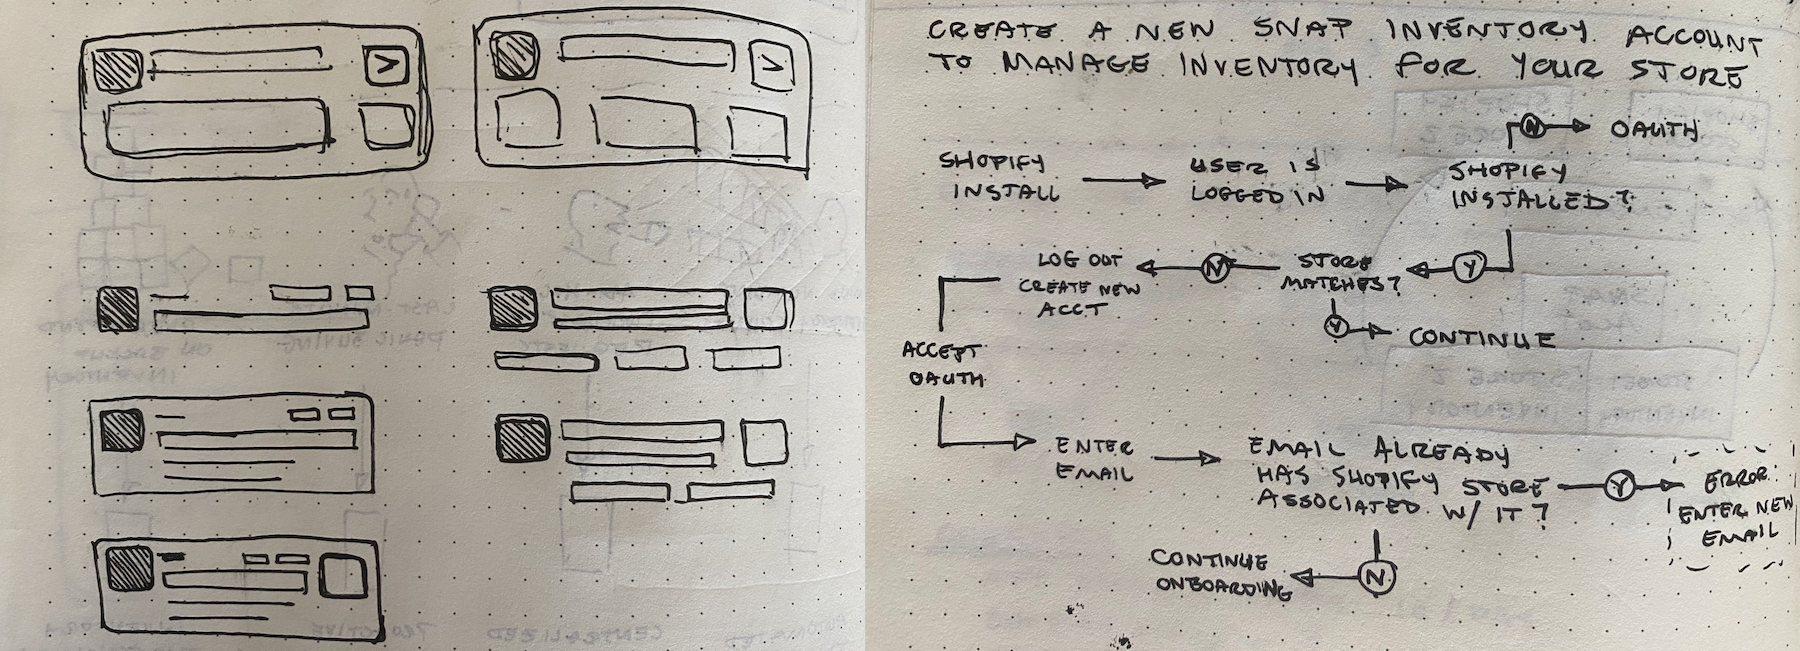 CREATE A NEW SNAP INVENTORY ACCOUNT
TO MANAGE INVENTORY FOR YOUR STORE
N
OAUTH
SHOPIFY
INSTALL
USER IS
LOGGED IN
SHOPIFY
INSTALLED?
LOG OUT
CREATE NEW
ACCT
N
STORE
MATCHES?
Y
Y
CONTINUE
ACCEPT
OAUTH
ENTER
EMAIL
EMAIL ALREADY
HAS SHOPIFY STORE
ASSOCIATED W/ IT?
Y
ERROR:
ENTER NEW
EMAIL
CONTINUE
ONBOARDING
N